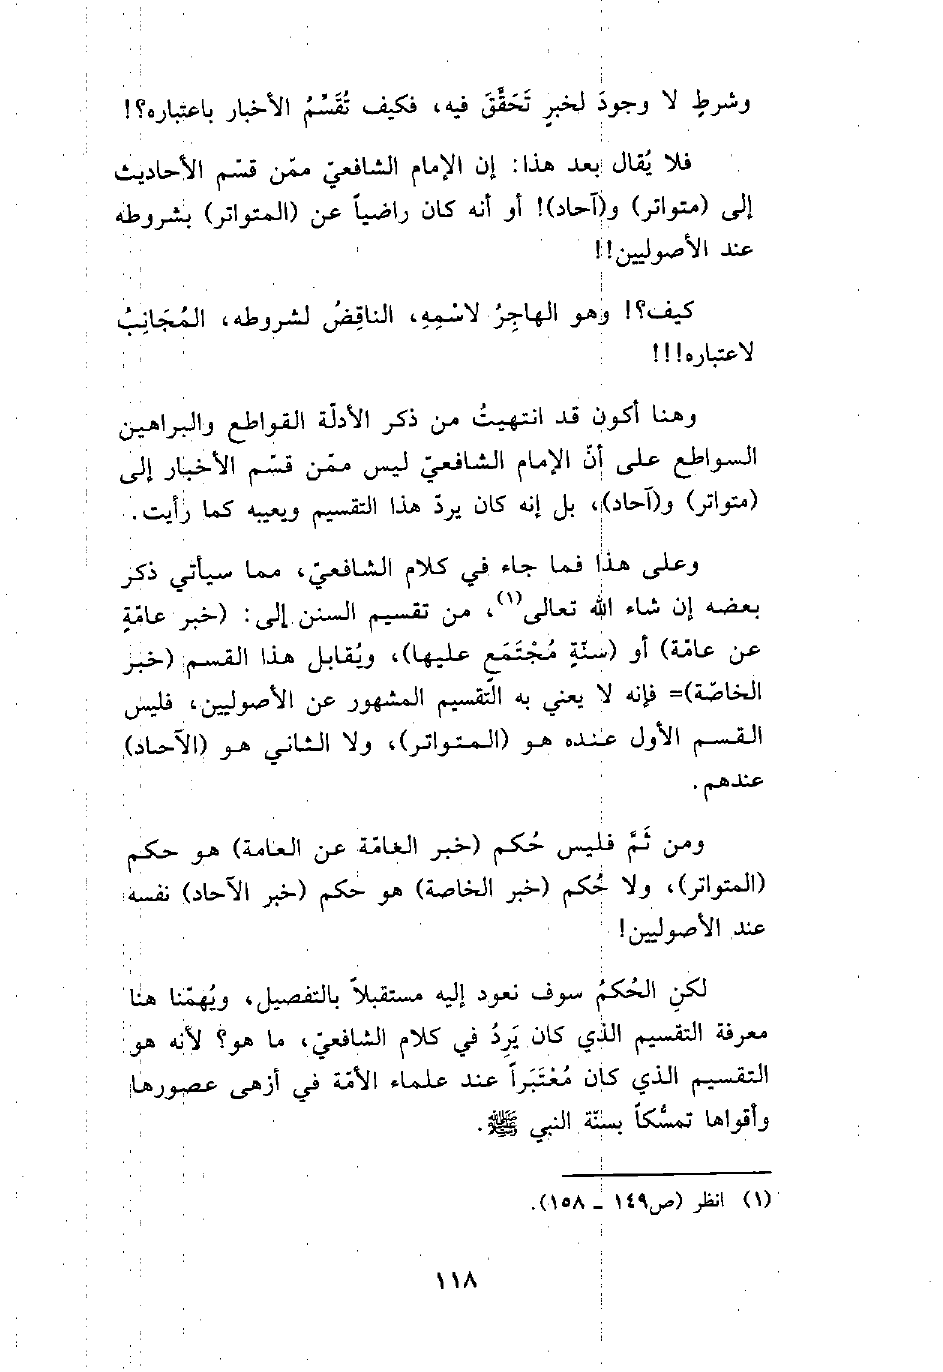 وشرطٍ لا وجودَ لخبرٍ تَحَقَّقَ فيه، فكيف تُقَسَّمُ الأخبار باعتباره؟!
فلا يُقال بعد هذا: إن الإمام الشافعيّ ممّن قسّم الأحاديث
إلى (متواتر) و(آحاد)! أو أنه كان راضياً عن (المتواتر) بشروطه
عند الأصوليين!!
كيف؟! وهو الهاجِرُ لاسْمِهِ، الناقِضُ لشروطه، المُجَانِبُ
لاعتباره!!!
وهنا أكون قد انتهيتُ من ذكر الأدلّة القواطع والبراهين
السواطع على أنّ الإمام الشافعيّ ليس ممّن قسّم الأخبار إلى
(متواتر) و(آحاد)، بل إنه كان يردّ هذا التقسيم ويعيبه كما رأيت.
وعلى هذا فما جاء في كلام الشافعيّ، مما سيأتي ذكر
بعضه إن شاء الله تعالى(١)، من تقسيم السنن إلى: (خبر عامّةٍ
عن عامّة) أو (سنّةٍ مُجْتَمَعٍ عليها)، ويُقابل هذا القسم (خبر
الخاصّة)= فإنه لا يعني به التّقسيم المشهور عن الأصوليين، فليس
القسم الأول عنده هو (المتواتر)، ولا الثاني هو (الآحاد)
عندهم.
ومن ثَمَّ فليس حُكم (خبر العامّة عن العامة) هو حكم
(المتواتر)، ولا حُكم (خبر الخاصة) هو حكم (خبر الآحاد) نفسه
عند الأصوليين!
لكنِ الحُكمُ سوف نعود إليه مستقبلاً بالتفصيل، ويُهمّنا هنا
معرفة التقسيم الذي كان يَرِدُ في كلام الشافعيّ، ما هو؟ لأنه هو
التقسيم الذي كان مُعْتَبَراً عند علماء الأمّة في أزهى عصورها
وأقواها تمسُّكاً بسنّة النبي ﷺ.
(١) انظر (ص١٤٩ ـ ١٥٨).
١١٨